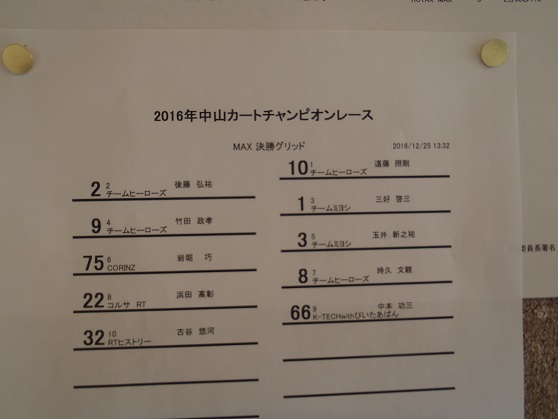 2016年中山カートチャンピオンレース
MAX 決勝グリッド
2016/12/25 13:32
10 1 遠藤 照剛
チームヒーローズ
2 2 後藤 弘祐
チームヒーローズ
1 3 三好 啓三
チームミヨシ
9 4 竹田 政孝
チームヒーローズ
3 5 玉井 新之祐
チームミヨシ
75 6 岩堀 巧
CORINZ
8 7 時久 文親
チームヒーローズ
22 8 浜田 高彰
コルサ RT
66 9 中本 功三
K-TECHwithぴいたあぱん
32 10 古谷 悠河
RTヒストリー
委員長署名